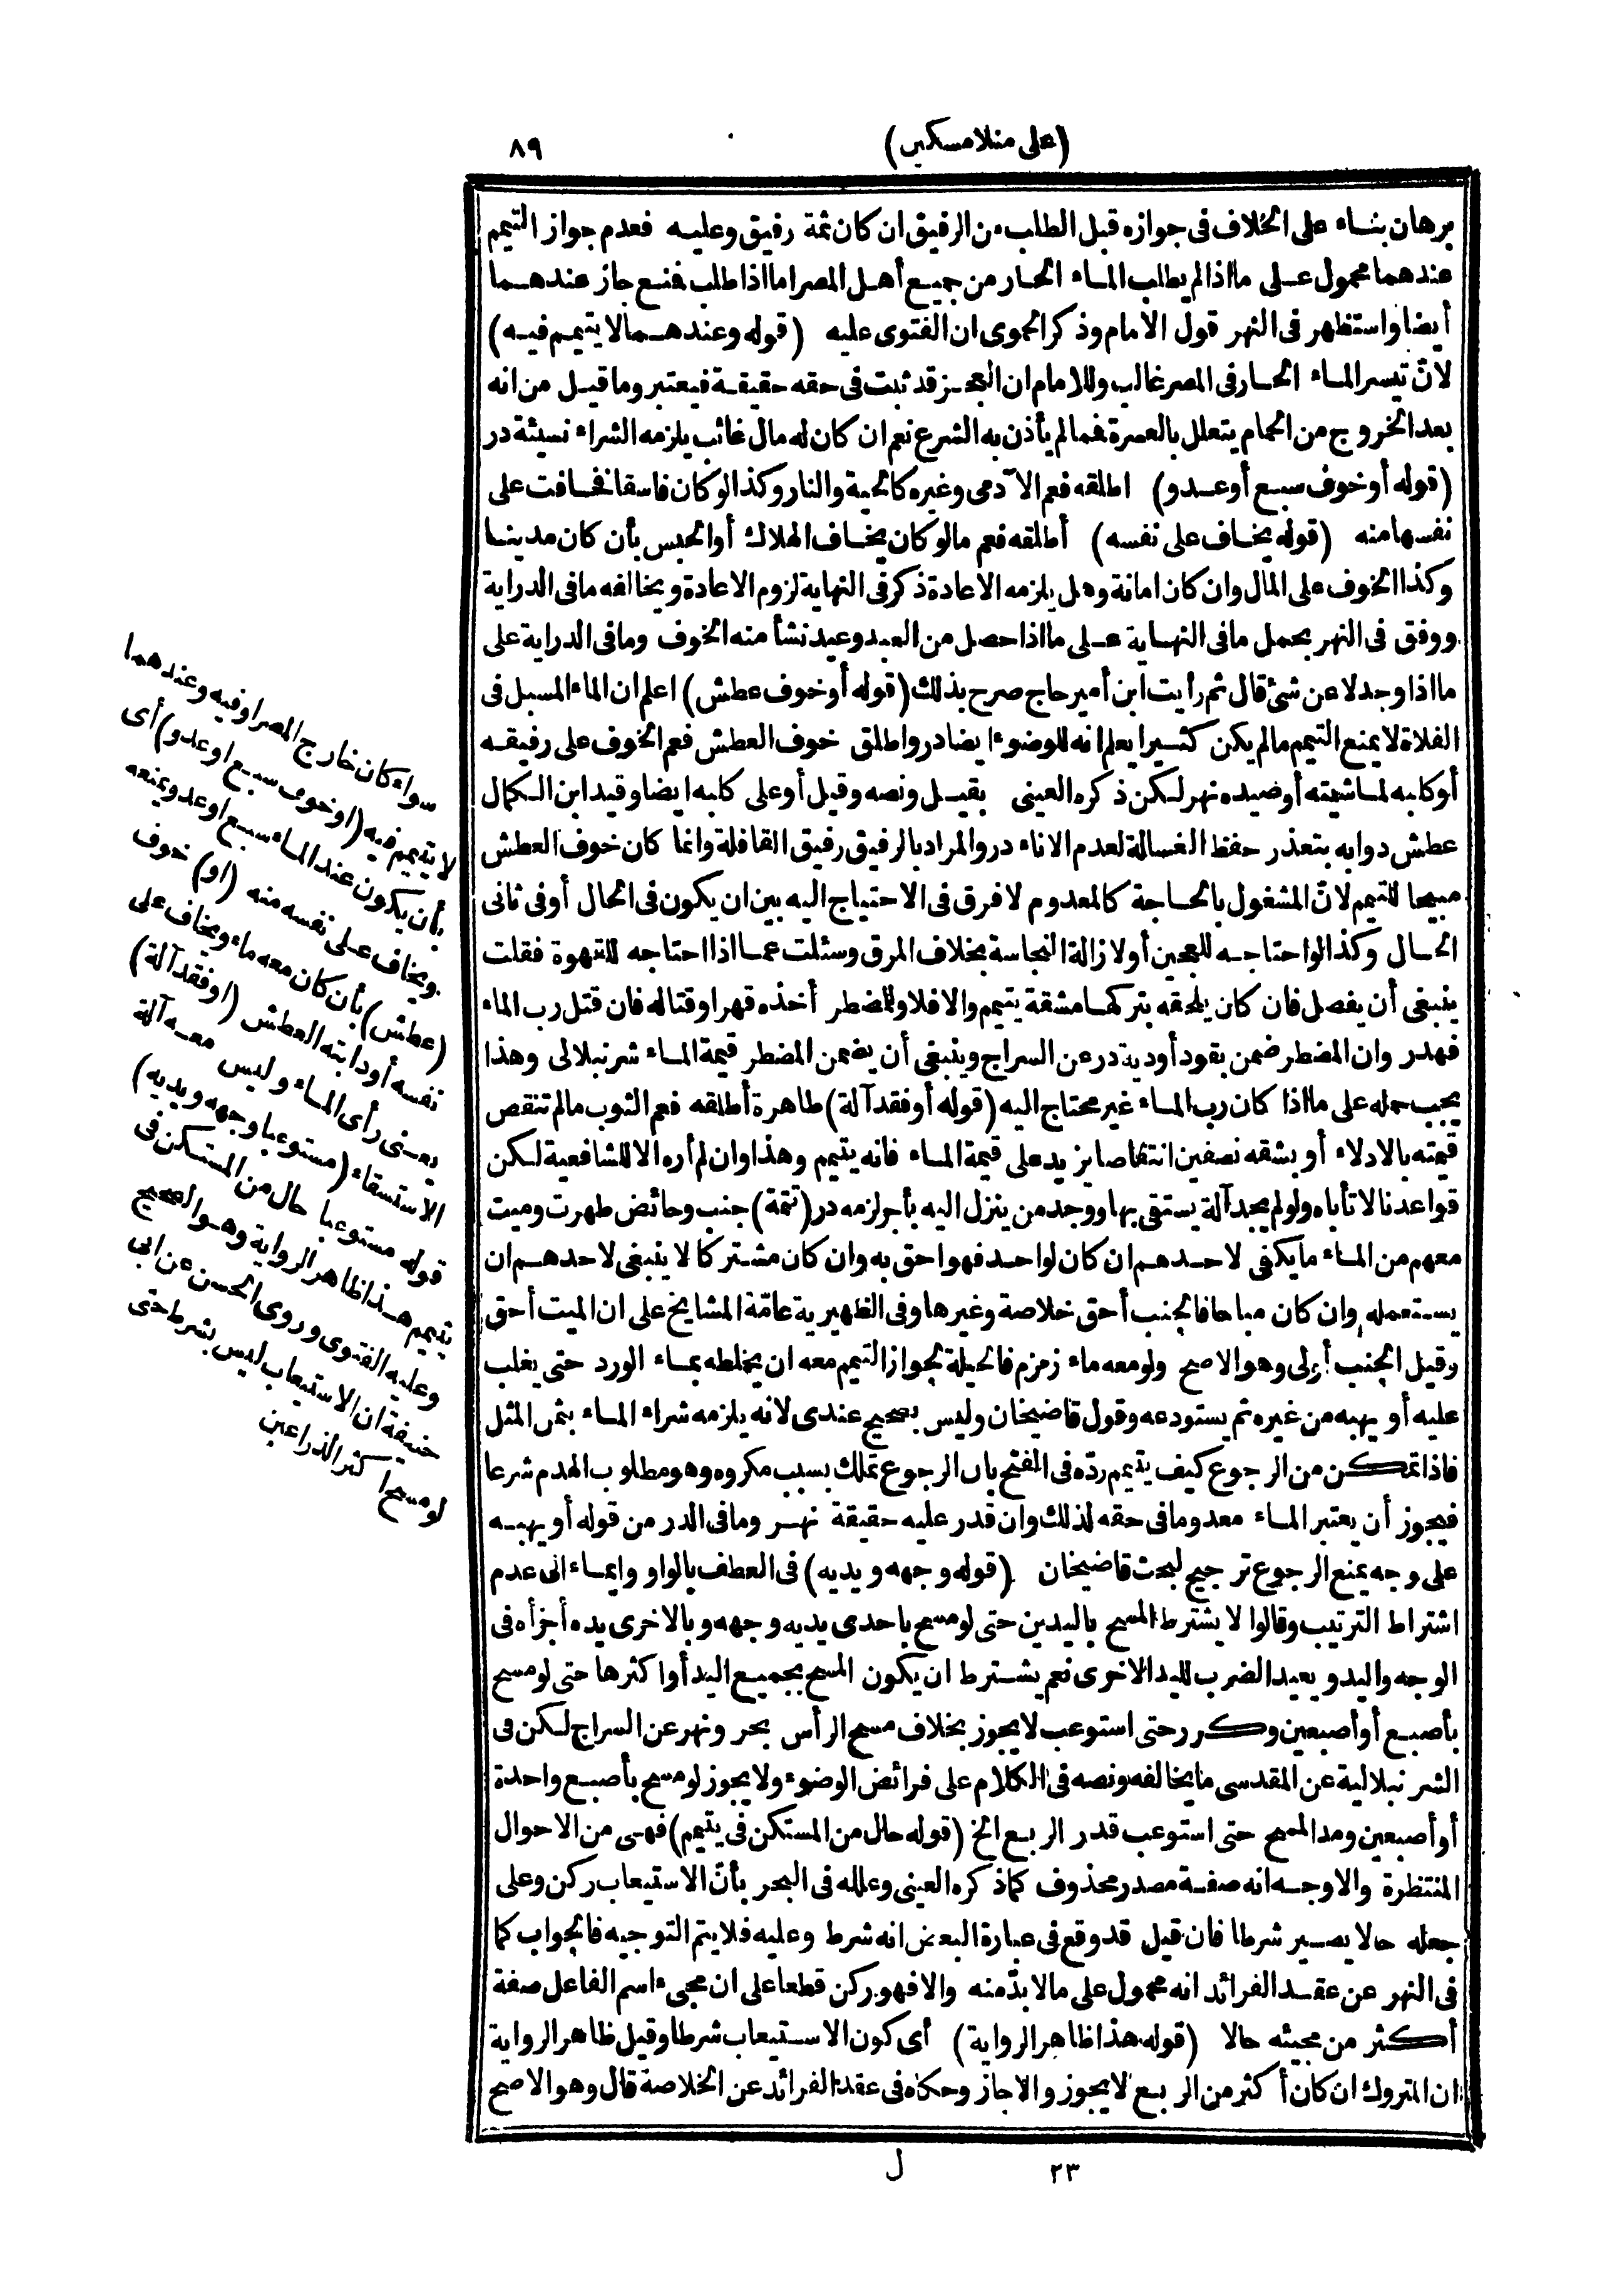 (على منلا مسكين) ٨٩
برهان بناء على الخلاف فى جوازه قبل الطلب من الرفيق ان كان ثمة رفيق وعليه فعدم جواز التيمم
عندهما محمول على ما اذا لم يطلب الماء الحار من جميع أهل المصر اما اذا طلب فمنع جاز عندهما
أيضا واستظهر فى النهر قول الامام وذكر الحموى ان الفتوى عليه (قوله وعندهما لا يتيمم فيه)
لانّ تيسر الماء الحار فى المصر غالب وللامام ان العجز قد ثبت فى حقه حقيقة فيعتبر وما قيل من انه
بعد الخروج من الحمام يتعلل بالعسرة فمما لم يأذن به الشرع نعم ان كان له مال غائب يلزمه الشراء نسيئة در
(قوله أو خوف سبع أو عدو) اطلقه فعم الآدمى وغيره كالحية والنار وكذا لو كان فاسقا فخافت على
نفسها منه (قوله يخاف على نفسه) أطلقه فعم ما لو كان يخاف الهلاك أو الحبس بأن كان مدينا
وكذا الخوف على المال وان كان امانة وهل يلزمه الاعادة ذكر فى النهاية لزوم الاعادة ويخالفه ما فى الدراية
ووفق فى النهر بحمل ما فى النهاية على ما اذا حصل من العبد وعيد نشأ منه الخوف وما فى الدراية على
ما اذا وجد لا عن شئ قال ثم رأيت ابن أمير حاج صرح بذلك (قوله أو خوف عطش) اعلم ان الماء المسبل فى
الفلاة لا يمنع التيمم ما لم يكن كثيرا يعلم انه للوضوء ايضا در واطلق خوف العطش فعم الخوف على رفيقه
أو كلبه لماشيته أو صيده نهر لكن ذكره العينى بقيل ونصه وقيل أو على كلبه ايضا وقيد ابن الكمال
عطش دوابه بتعذر حفظ الغسالة لعدم الاناء در والمراد بالرفيق رفيق القافلة وانما كان خوف العطش
مبيحا للتيمم لانّ المشغول بالحاجة كالمعدوم لا فرق فى الاحتياج اليه بين ان يكون فى الحال أو فى ثانى
الحال وكذا لو احتاجه للعجين أو لازالة النجاسة بخلاف المرق وسئلت عما اذا احتاجه للقهوة فقلت
ينبغى أن يفصل فان كان يلحقه بتركها مشقة يتيمم والا فلا وللمضطر أخذه قهرا وقتاله فان قتل رب الماء
فهدر وان المضطر ضمن بقود أو دية در عن السراج وينبغى أن يضمن المضطر قيمة الماء شرنبلالى وهذا
يجب حمله على ما اذا كان رب الماء غير محتاج اليه (قوله أو فقد آلة) طاهرة أطلقه فعم الثوب ما لم تنقص
قيمته بالادلاء أو بشقه نصفين انتقاصا يزيد على قيمة الماء فانه يتيمم وهذا وان لم أره الا للشافعية لكن
قواعدنا لا تأباه ولو لم يجد آلة يستقى بها ووجد من ينزل اليه بأجر لزمه در (تتمة) جنب وحائض طهرت وميت
معهم من الماء ما يكفى لاحدهم ان كان لواحد فهو احق به وان كان مشتركا لا ينبغى لاحدهم ان
يستعمله وان كان مباحا فالجنب أحق خلاصة وغيرها وفى الظهيرية عامّة المشايخ على ان الميت أحق
وقيل الجنب أولى وهو الاصح ولو معه ماء زمزم فالحيلة لجواز التيمم معه ان يخلطه بماء الورد حتى يغلب
عليه أو يهبه من غيره ثم يستودعه وقول قاضيخان وليس بصحيح عندى لانه يلزمه شراء الماء بثمن المثل
فاذا تمكن من الرجوع كيف يتيمم ردّه فى الفتح بان الرجوع تملك بسبب مكروه وهو مطلوب الهدم شرعا
فيجوز أن يعتبر الماء معدوما فى حقه لذلك وان قدر عليه حقيقة نهر وما فى الدر من قوله أو يهبه
على وجه يمنع الرجوع ترجيح لبحث قاضيخان (قوله وجهه ويديه) فى العطف بالواو وايماء الى عدم
اشتراط الترتيب وقالوا لا يشترط المسح باليدين حتى لو مسح باحدى يديه وجهه وبالاخرى يده أجزأه فى
الوجه واليد ويعيد الضرب لليد الاخرى نعم يشترط ان يكون المسح بجميع اليد أو اكثرها حتى لو مسح
بأصبع أو أصبعين وكرر حتى استوعب لا يجوز بخلاف مسح الرأس بحر ونهر عن السراج لكن فى
الشرنبلالية عن المقدسى ما يخالفه ونصه فى الكلام على فرائض الوضوء ولا يجوز لو مسح بأصبع واحدة
أو أصبعين ومد المسح حتى استوعب قدر الربع الخ (قوله حال من المستكن فى يتيمم) فهى من الاحوال
المنتظرة والاوجه انه صفة مصدر محذوف كما ذكره العينى وعلله فى البحر بأنّ الاستيعاب ركن وعلى
جعله حالا يصير شرطا فان قيل قد وقع فى عبارة البعض انه شرط وعليه فلا يتم التوجيه فالجواب كما
فى النهر عن عقد الفرائد انه محمول على ما لا بدّ منه والا فهو ركن قطعا على ان مجىء اسم الفاعل صفة
أكثر من مجيئه حالا (قوله هذا ظاهر الرواية) أى كون الاستيعاب شرطا وقيل ظاهر الرواية
ان المتروك ان كان أكثر من الربع لا يجوز والا جاز وحكاه فى عقد الفرائد عن الخلاصة قال وهو الاصح
سواء كان خارج المصر او فيه وعندهما
لا يتيمم فيه (او خوف سبع او عدو) أى
بأن يكون عند الماء سبع او عدو يمنعه
ويخاف على نفسه منه (او) خوف
(عطش) بأن كان معه ماء ويخاف على
نفسه أو دابته العطش (او فقد آلة)
يعنى رأى الماء وليس معه آلة
الاستسقاء (مستوعبا وجهه ويديه)
قوله مستوعبا حال من المستكن فى
يتيمم هذا ظاهر الرواية وهو الصحيح
وعليه الفتوى وروى الحسن عن ابى
حنيفة ان الاستيعاب ليس بشرط حتى
لو مسح اكثر الذراعين
٢٣ ل